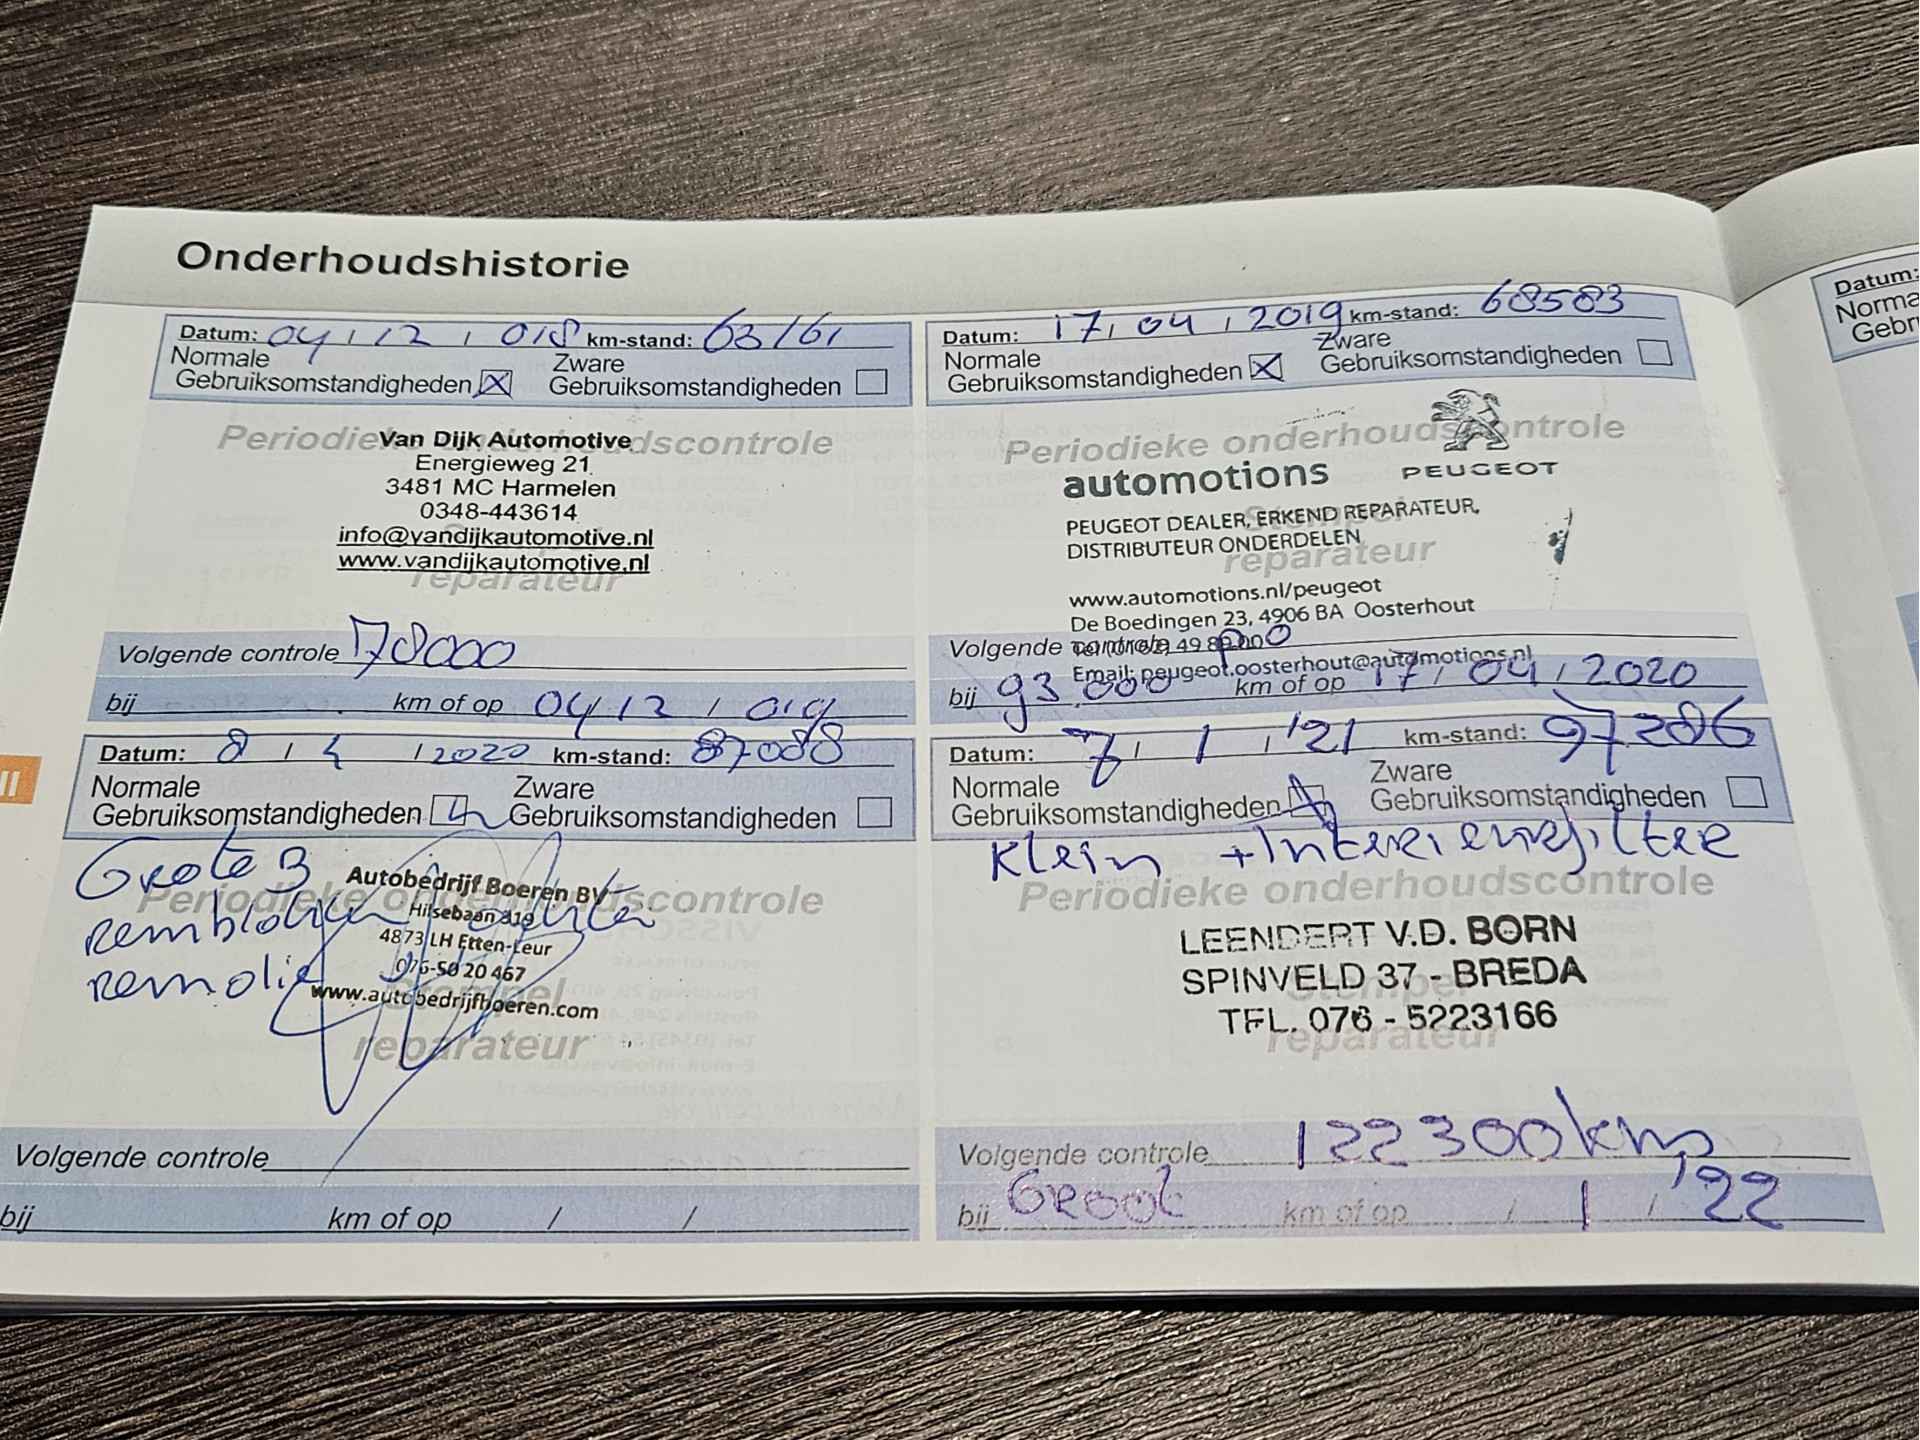 Onderhoudshistorie
Datum: 04 / 12 / 018 km-stand: 63161
Normale
Gebruiksomstandigheden
Zware
Gebruiksomstandigheden
Periodieke onderhoudscontrole
Van Dijk Automotive
Energieweg 21
3481 MC Harmelen
0348-443614
info@vandijkautomotive.nl
www.vandijkautomotive.nl
reparateur
Volgende controle 78000
bij km of op 04 / 12 / 019
Datum: 17 / 04 / 2019 km-stand: 68583
Normale
Gebruiksomstandigheden
Zware
Gebruiksomstandigheden
Periodieke onderhoudscontrole
automotions PEUGEOT
PEUGEOT DEALER, ERKEND REPARATEUR,
DISTRIBUTEUR ONDERDELEN
Stempel
reparateur
www.automotions.nl/peugeot
De Boedingen 23, 4906 BA Oosterhout
Volgende controle
Email: peugeot.oosterhout@automotions.nl
bij 93.000 km of op 17 / 04 / 2020
Datum: 8 / 4 / 2020 km-stand: 87088
Normale
Gebruiksomstandigheden
Zware
Gebruiksomstandigheden
Grote B
remblokken
remolie
Periodieke onderhoudscontrole
Autobedrijf Boeren BV
Hilsebaan
4873 LH Etten-Leur
076-50 20 467
www.autobedrijfboeren.com
Stempel
reparateur
Volgende controle
bij km of op / /
Datum: 7 / 1 / '21 km-stand: 97286
Normale
Gebruiksomstandigheden
Zware
Gebruiksomstandigheden
Klein + Interieurfilter
Periodieke onderhoudscontrole
LEENDERT V.D. BORN
SPINVELD 37 - BREDA
TEL. 076 - 5223166
Stempel
reparateur
Volgende controle 122300 km
bij Groot km of op / 1 / '22
II
Datum: